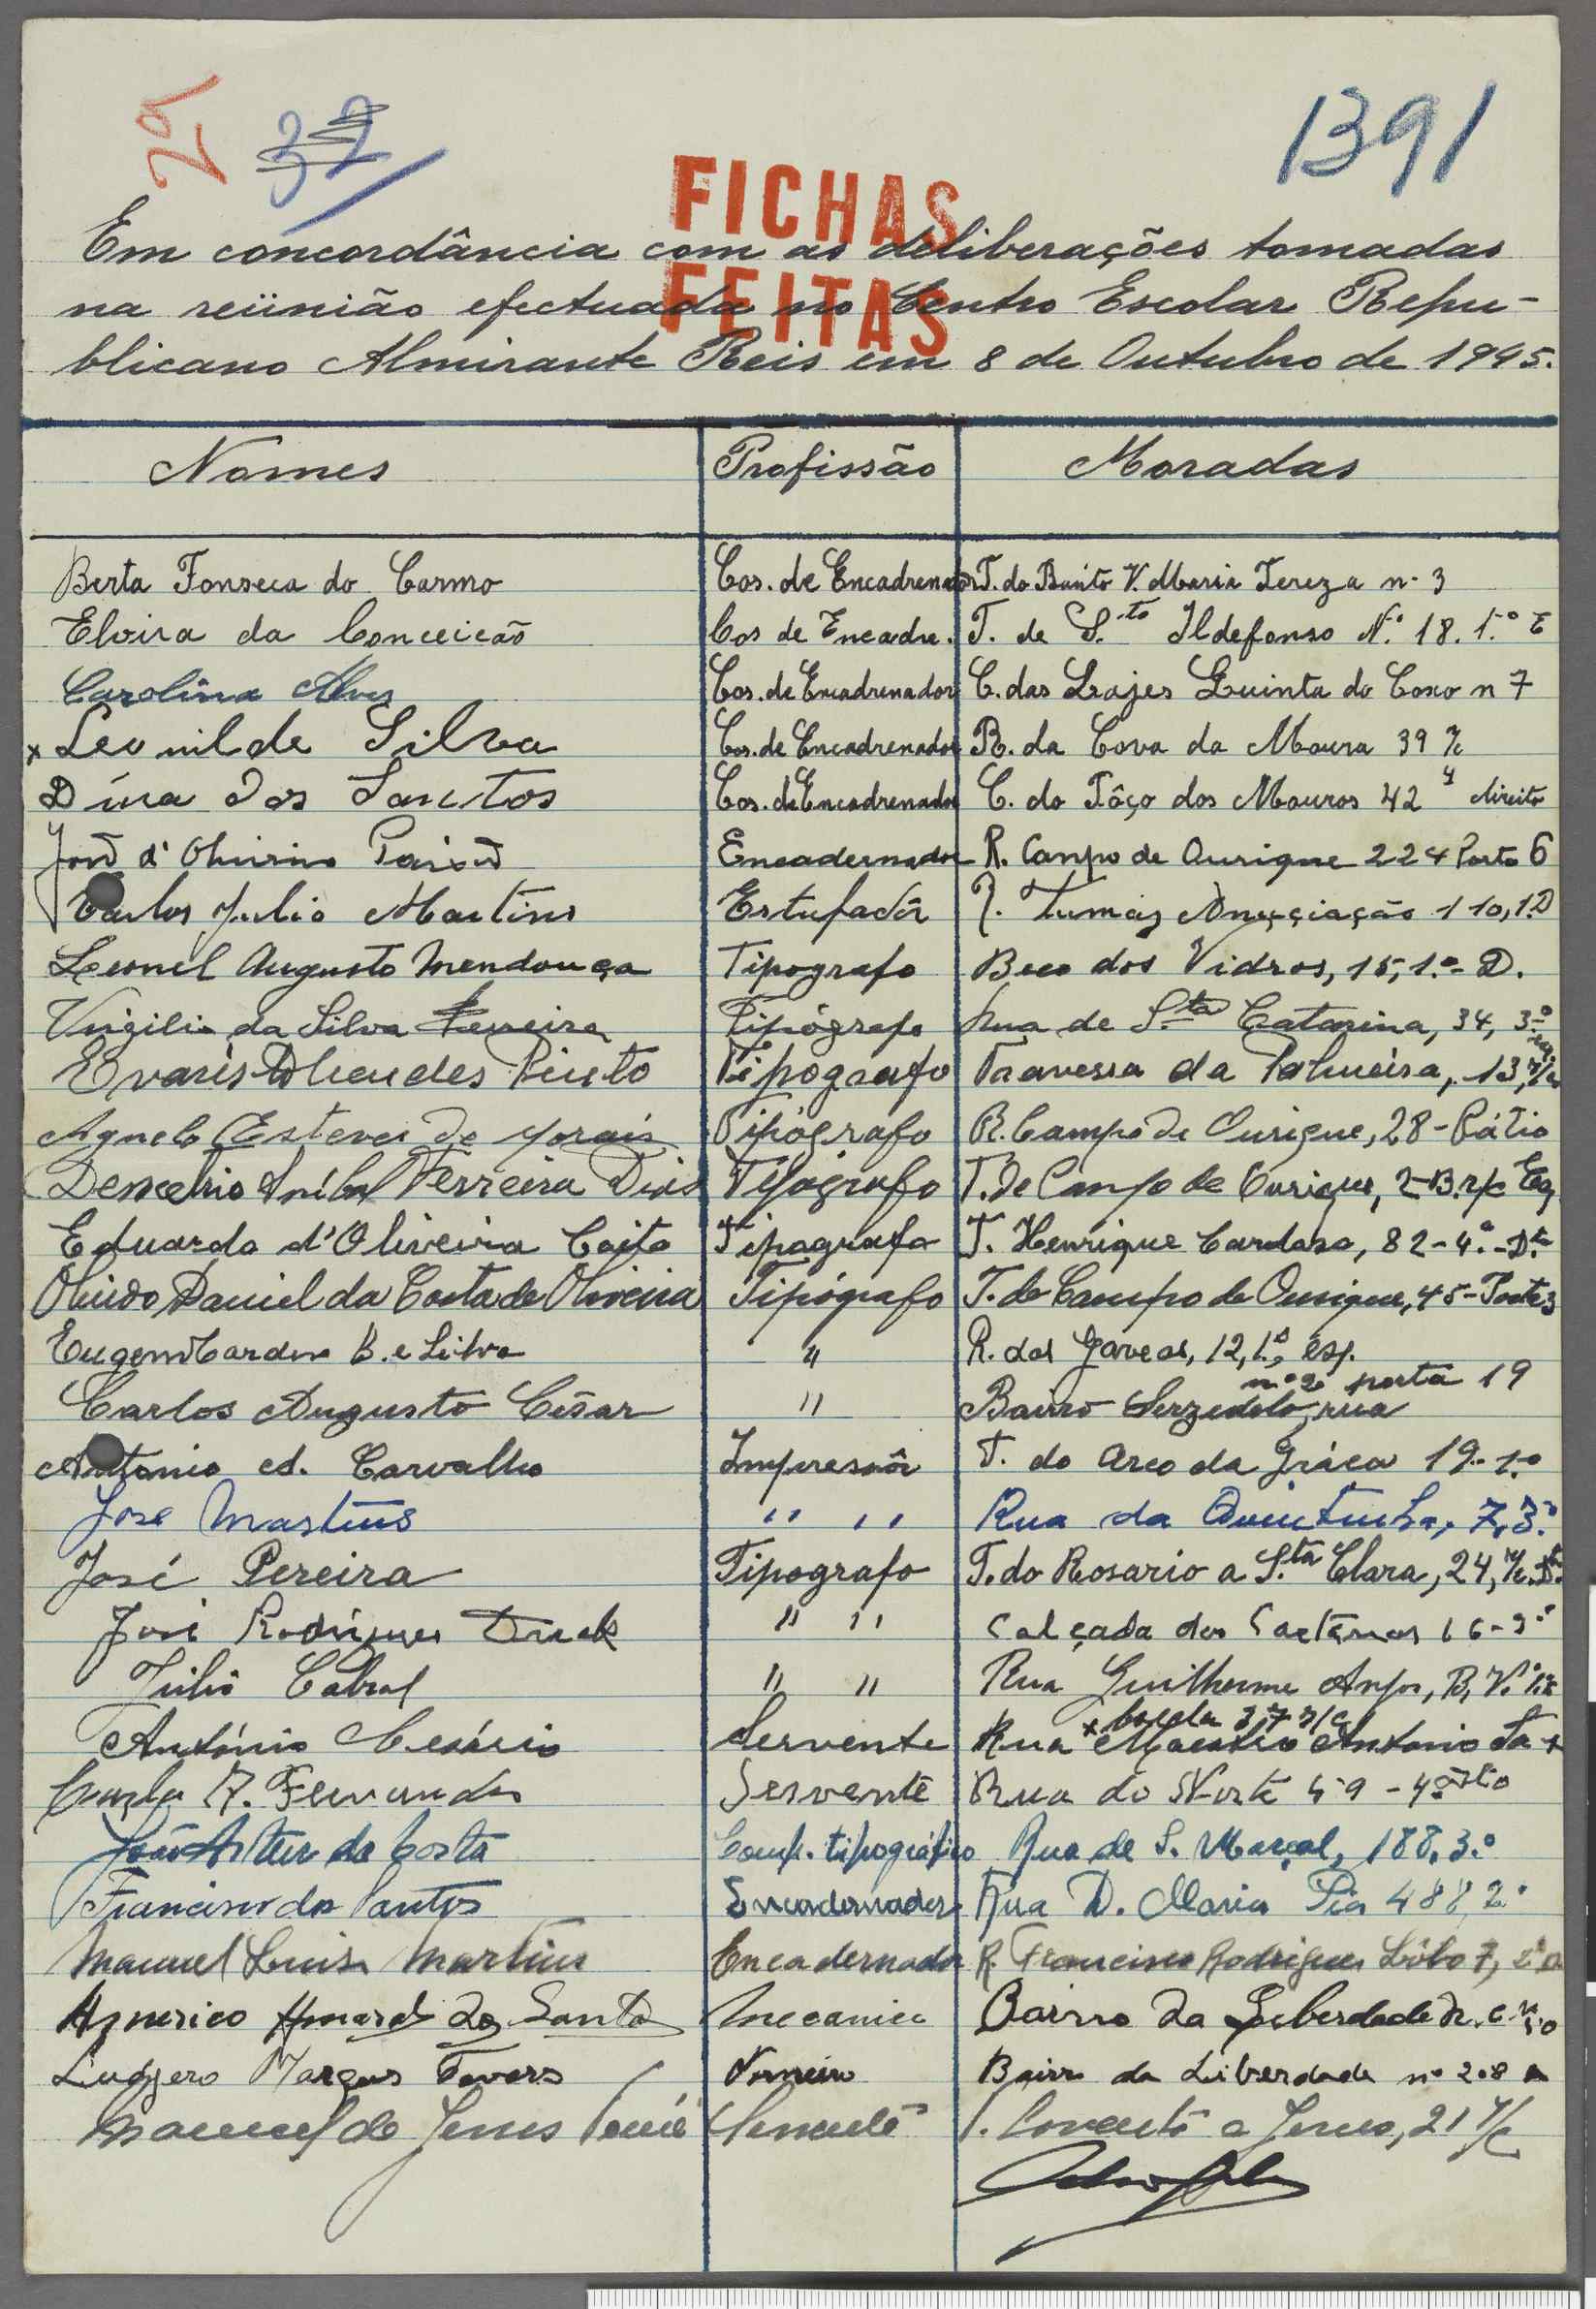 29 32 1391
FICHAS
FEITAS
Em concordância com as deliberações tomadas
na reünião efectuada no Centro Escolar Repu-
blicano Almirante Reis em 8 de Outubro de 1945.
Nomes Profissão Moradas
Berta Fonseca do Carmo Cos. de Encadrenador T. do Maria Tereza n- 3
Elvira da Conceicão Cos de Encadre. T. de S.to Ildefonso N.º 18. 1.º E
Carolina Alves Cos. de Encadrenador C. das Lajes Quinta do Coxo n 7
x Leonilde Silva Cos. de Encadrenador R. da Cova da Moura 39 %
Dína dos Santos Cos. de Encadrenador C. do Pôço dos Mouros 42 direito
Encadernador R. Campo de Ourique 224 Porta 6
Carlos Julio Martins Estufadôr R. Tumaz 110, 1.D
Leonel Augusto Mendonça Tipografo Beco dos Vidros, 15, 1.º - D.
Virgilio da Silva Ferreira Tipógrafo Rua de Sta Catarina, 34, 3.º
Evaristo Mendes Pinto Tipografo Travessa da Palmeira, 13, r/c
Agnelo Esteves de Morais Tipógrafo R. Campo de Ourique, 28 - Pátio
Demetrio Aníbal Ferreira Dias Tipógrafo T. de Campo de Ourique, 2-B. r/c Esq
Eduardo d'Oliveira Coito Tipografo T. Henrique Cardoso, 82 - 4.º - D.to
Olindo Daniel da Costa de Oliveira Tipógrafo T. de Campo de Ourique, 45 - Porta 3
B. e Silva " R. das Gaveas, 12, 1.º, esq.
nº 2 porta 19
Carlos Augusto César " Bairro Serzedelo, rua
António A. Carvalho Impressôr T. do Arco da Gráca 19 - 1.º
José Martins " " Rua da Quintinha, 7, 3.º
José Pereira Tipografo T. do Rosario a S.ta Clara, 24, r/c D.to
José Rodrigues " " Calçada dos Caetanos 16 - 3º
Júlio Cabral " " Rua Guilherme Anjos,
x 3, 7 r/c
António Cesário Servente Rua Maestro Antonio Ta x
A. Fernandes Servente Rua do Norte 59 - 4.º
João Artur da Costa Comp. tipográfico Rua de S. Marçal, 188, 3.º
Francisco dos Santos Encadernador Rua D. Maria Pia 488, 2º
Manuel Luis Martins Encadernador R. Francisco Rodrigues Lôbo 7, 2º D
Americo Amaral dos Santos Mecanico Bairro da Liberdade
Ludgero Marques Tavares Torneiro Bairro da Liberdade nº 208 A
Manuel de Jesus Servente T. Convento a Jesus, 21 r/c